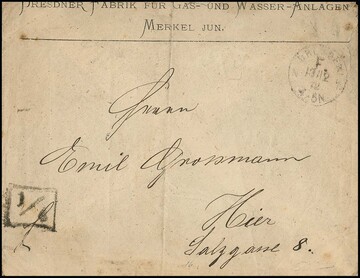 DRESDNER FABRIK FÜR GAS- UND WASSER-ANLAGEN
MERKEL JUN.
F
Herrn
Emil Grossmann
Hier
Salzgasse 8.